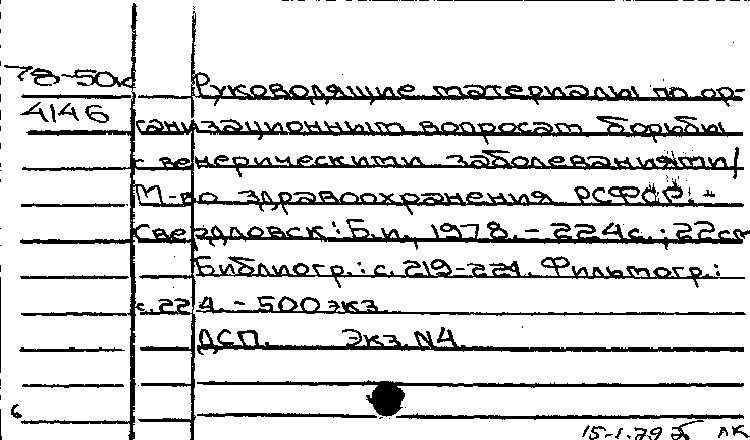 78-50к Руководящие материалы по ор-
4146 ганизационным вопросам борьбы
с венерическими заболеваниями/
М-во здравоохранения РСФСР. -
Свердловск: Б.и., 1978. - 224с.; 22см
Библиогр.: с. 219-221. Фильмогр.:
с. 224. - 500экз.
ДСП. Экз. N4.
6
15-1.79 лк